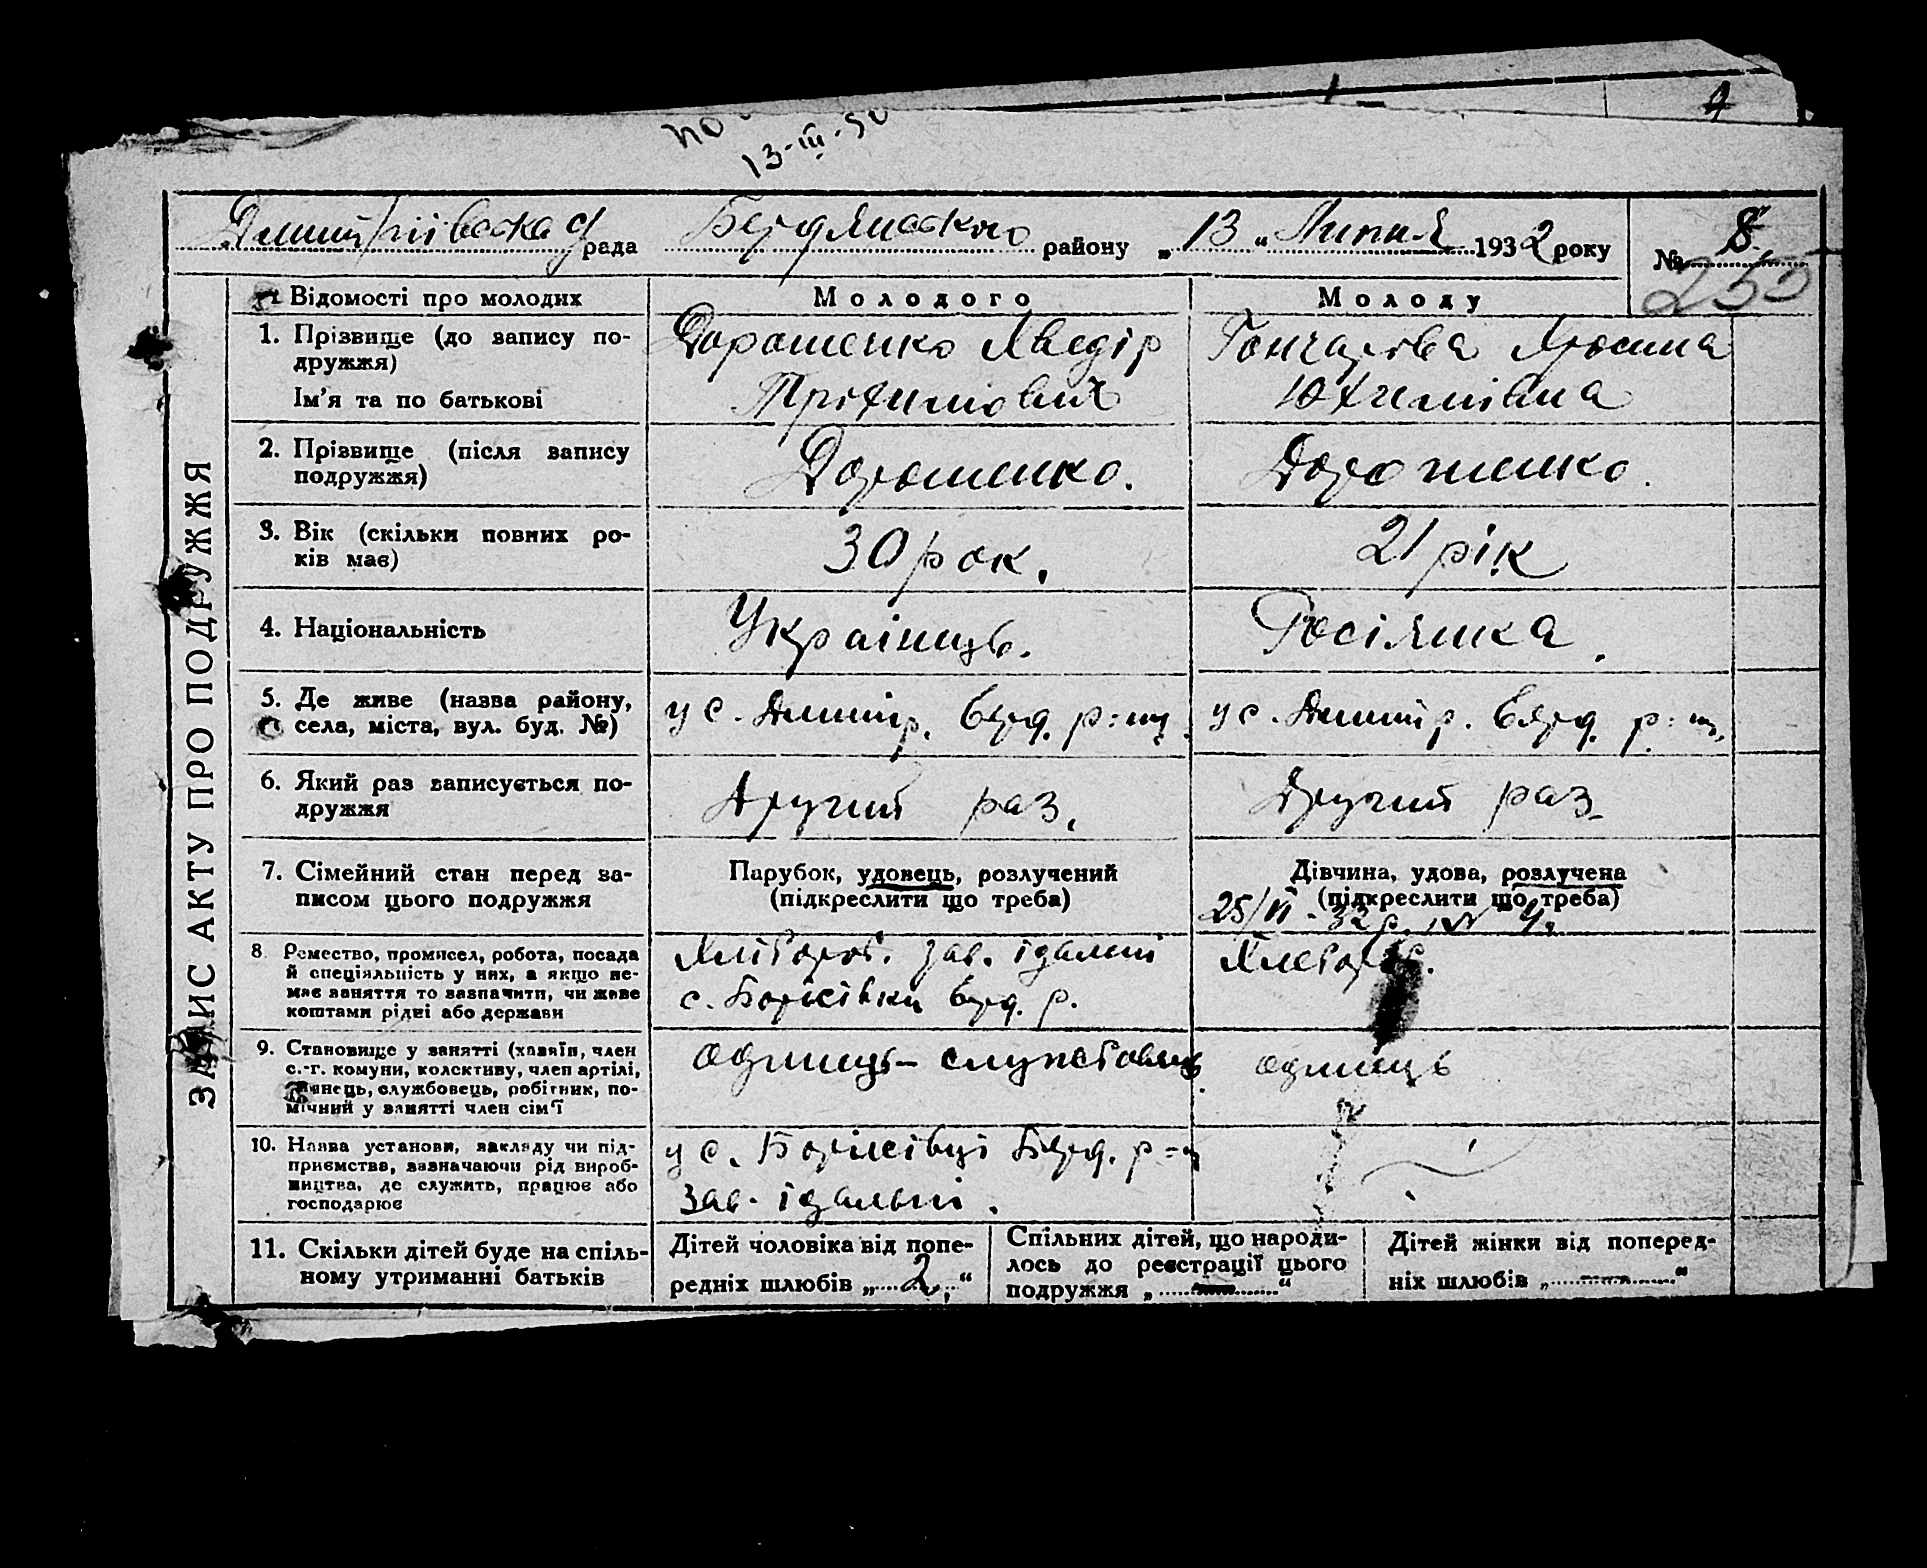 по
13-III-50
Дмитріівська с/рада Бердянського району „ 13 “ Липня 1932 року № 8
255
ЗАПИС АКТУ ПРО ПОДРУЖЖЯ
Відомості про молодих Молодого Молоду
1. Прізвище (до запису по- Дорошенко Хведір Гончарова Хросина
дружжя)
Ім'я та по батькові Трохимович Юхимівна
2. Прізвище (після запису Дорошенко. Дорошенко.
подружжя)
3. Вік (скільки повних ро- 30 рок. 21 рік
ків має)
4. Національність Украінець. Росіянка.
5. Де живе (назва району, у с. Дмитр. Берд. р: у с. Дмитр. Берд. р:
села, міста, вул. буд. №)
6. Який раз записується по- Другий раз. Другий раз
дружжя
7. Сімейний стан перед за- Парубок, удовець, розлучений Дівчина, удова, розлучена
писом цього подружжя (підкреслити що треба) (підкреслити що треба)
25/VI - 32 р. № 4.
8. Ремество, промисел, робота, посада Хлібороб. зав. ідальні Хлебороб.
й спеціяльність у них, а якщо не- с. Борісівки Берд. р.
має заняття то зазначити, чи живе
коштами рідні або держави
9. Становище у занятті (хазяїн, член одинець – службовець одинець
с.-г. комуни, колективу, член артілі,
службовець, робітник, по-
мічний у занятті член сім'ї
10. Назва установи, закладу чи під- у с. Борисівці Берд. р-
приємства, зазначаючи рід вироб- зав. ідальні.
ництва, де служить, працює або
господарює
11. Скільки дітей буде на спіль- Дітей чоловіка від попе- Спільних дітей, що народи- Дітей жінки від поперед-
ному утриманні батьків редніх шлюбів „ 2 “ лось до реєстрації цього ніх шлюбів „ — “
подружжя „ — “